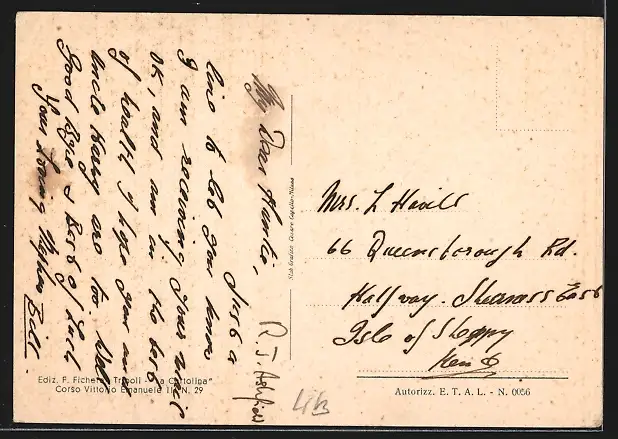 My Dear Auntie,
Just a
line to let you know
I am receiving your mail
OK, and am in the best
of health I hope you and
Uncle Harry are too. Well
Good Bye & Best of Luck
Your Loving Nephew Bill.
R. J. 
Mrs. L Havill
66 Queensborough Rd.
Halfway. Sheerness East
Isle of Sheppy
Kent
Stab. Grafico Cesare Capello-Milano
Ediz. F. Fichera Tripoli "La Cartolina"
Corso Vittorio Emanuele III N. 29
Autorizz. E. T. A. L. - N. 0056